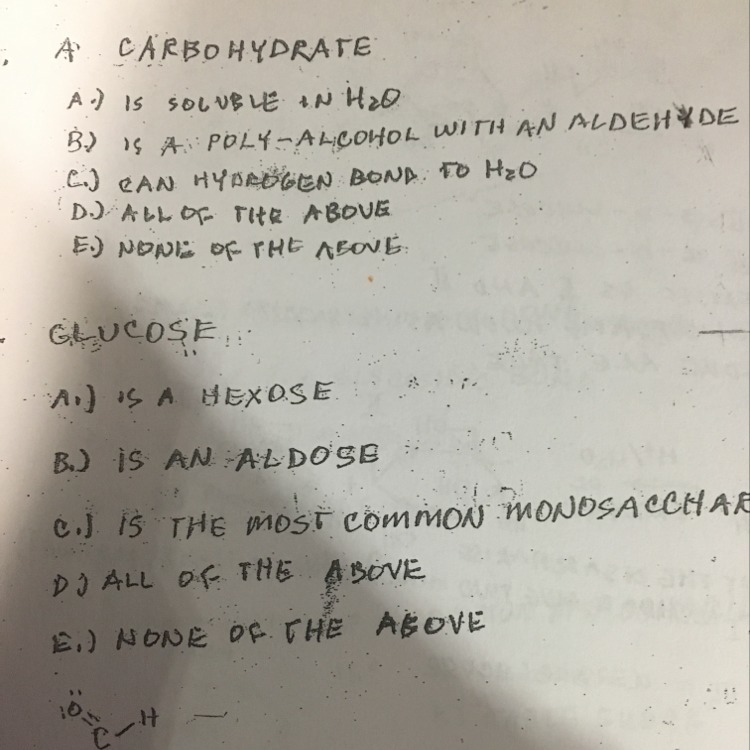 A CARBOHYDRATE
A.) IS SOLUBLE IN H2O
B.) IS A POLY-ALCOHOL WITH AN ALDEHYDE
C.) CAN HYDROGEN BOND TO H2O
D.) ALL OF THE ABOVE
E.) NONE OF THE ABOVE
GLUCOSE
A.) IS A HEXOSE
B.) IS AN ALDOSE
C.) IS THE MOST COMMON MONOSACCHAR
D.) ALL OF THE ABOVE
E.) NONE OF THE ABOVE
:O
C H